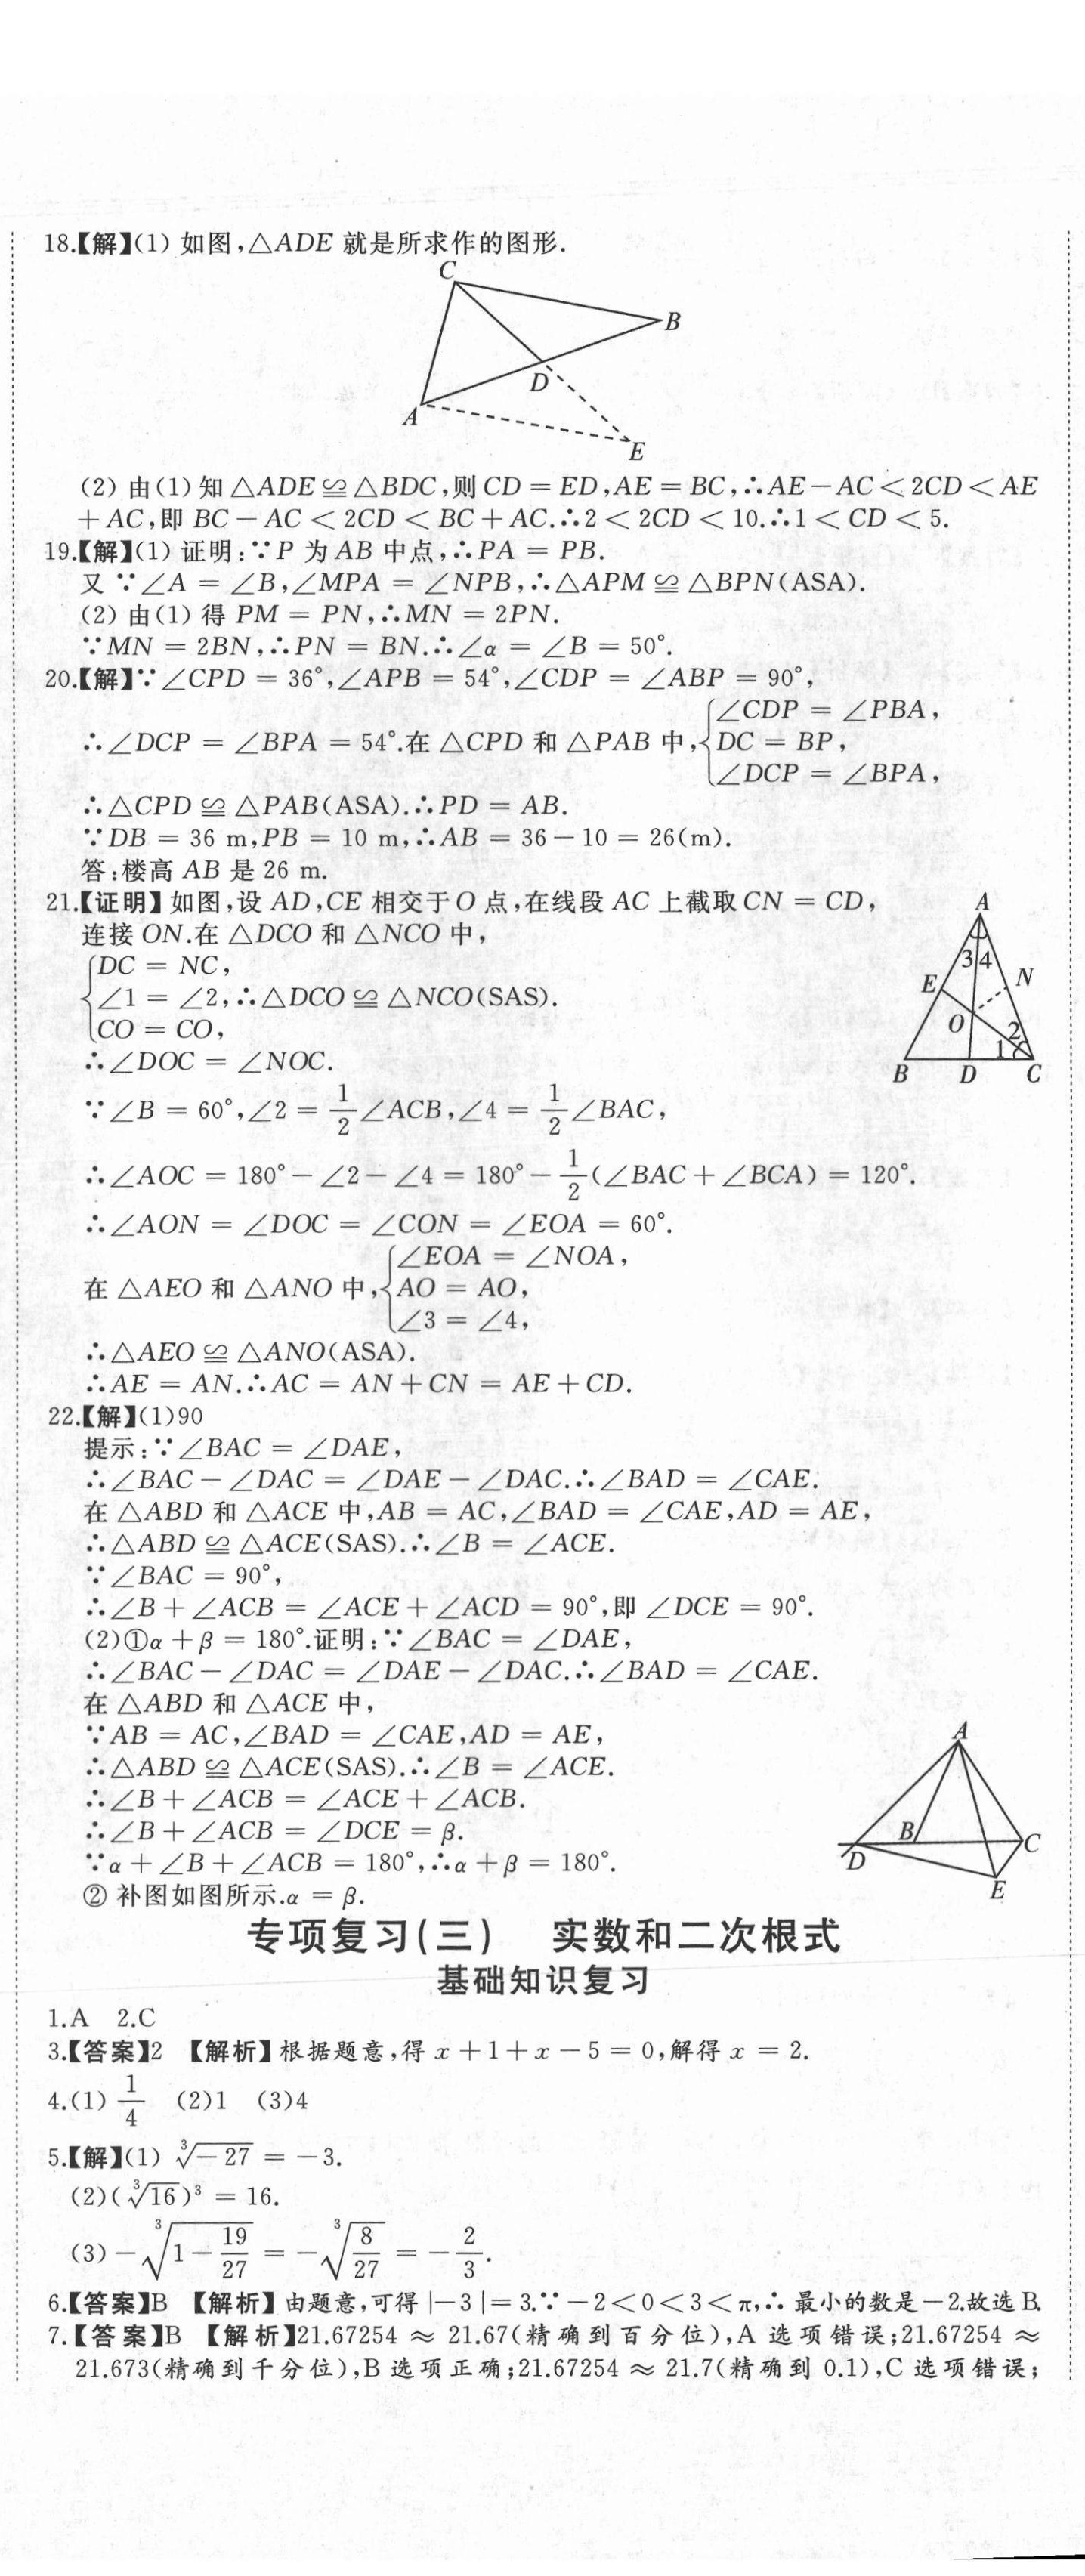 18.【解】(1) 如图,△ADE 就是所求作的图形.
C
B
D
A
E
(2) 由(1)知△ADE≌△BDC,则CD=ED,AE=BC,∴AE-AC<2CD<AE
+AC,即 BC-AC<2CD<BC+AC.∴2<2CD<10.∴1<CD<5.
19.【解】(1) 证明:∵P 为 AB 中点,∴PA=PB.
又 ∵∠A=∠B,∠MPA=∠NPB,∴△APM≌△BPN(ASA).
(2) 由(1) 得 PM=PN,∴MN=2PN.
∵MN=2BN,∴PN=BN.∴∠α=∠B=50°.
20.【解】∵∠CPD=36°,∠APB=54°,∠CDP=∠ABP=90°,
∴∠DCP=∠BPA=54°.在 △CPD 和 △PAB 中,{∠CDP=∠PBA,
DC=BP,
∠DCP=∠BPA,
∴△CPD≌△PAB(ASA).∴PD=AB.
∵DB=36 m,PB=10 m,∴AB=36-10=26(m).
答:楼高 AB 是 26 m.
21.【证明】如图,设 AD,CE 相交于O 点,在线段 AC 上截取CN=CD,
连接 ON.在 △DCO 和 △NCO 中,
{DC=NC,
∠1=∠2,∴△DCO≌△NCO(SAS).
CO=CO,
A
3 4
E
N
O
2
1
B D C
∴∠DOC=∠NOC.
∵∠B=60°,∠2=1/2∠ACB,∠4=1/2∠BAC,
∴∠AOC=180°-∠2-∠4=180°-1/2(∠BAC+∠BCA)=120°.
∴∠AON=∠DOC=∠CON=∠EOA=60°.
在 △AEO 和 △ANO 中,{∠EOA=∠NOA,
AO=AO,
∠3=∠4,
∴△AEO≌△ANO(ASA).
∴AE=AN.∴AC=AN+CN=AE+CD.
22.【解】(1)90
提示:∵∠BAC=∠DAE,
∴∠BAC-∠DAC=∠DAE-∠DAC.∴∠BAD=∠CAE.
在 △ABD 和 △ACE 中,AB=AC,∠BAD=∠CAE,AD=AE,
∴△ABD≌△ACE(SAS).∴∠B=∠ACE.
∵∠BAC=90°,
∴∠B+∠ACB=∠ACE+∠ACD=90°,即 ∠DCE=90°.
(2)①α+β=180°.证明:∵∠BAC=∠DAE,
∴∠BAC-∠DAC=∠DAE-∠DAC.∴∠BAD=∠CAE.
在 △ABD 和 △ACE 中,
∵AB=AC,∠BAD=∠CAE,AD=AE,
∴△ABD≌△ACE(SAS).∴∠B=∠ACE.
∴∠B+∠ACB=∠ACE+∠ACB.
∴∠B+∠ACB=∠DCE=β.
∵α+∠B+∠ACB=180°,∴α+β=180°.
② 补图如图所示.α=β.
A
B
C
D
E
专项复习(三) 实数和二次根式
基础知识复习
1.A 2.C
3.【答案】2 【解析】根据题意,得 x+1+x-5=0,解得 x=2.
4.(1) 1/4 (2)1 (3)4
5.【解】(1) ∛(-27)=-3.
(2)(∛16)³=16.
(3)-∛(1-19/27)=-∛(8/27)=-2/3.
6.【答案】B 【解析】由题意,可得|-3|=3.∵-2<0<3<π,∴最小的数是-2.故选B.
7.【答案】B 【解析】21.67254≈21.67(精确到百分位),A 选项错误;21.67254≈
21.673(精确到千分位),B 选项正确;21.67254≈21.7(精确到 0.1),C 选项错误;